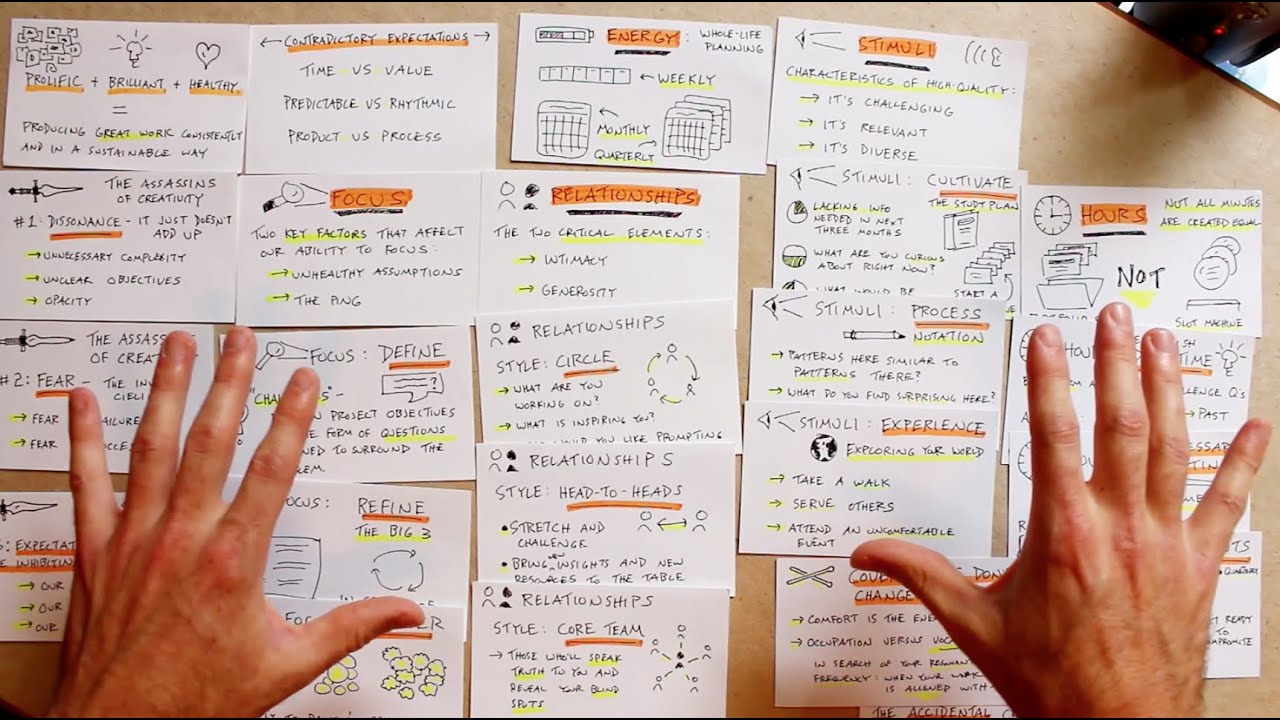 PROLIFIC + BRILLIANT + HEALTHY
=
PRODUCING GREAT WORK CONSISTENTLY
AND IN A SUSTAINABLE WAY
CONTRADICTORY EXPECTATIONS
TIME VS VALUE
PREDICTABLE VS RHYTHMIC
PRODUCT VS PROCESS
ENERGY: WHOLE-LIFE
PLANNING
WEEKLY
MONTHLY
QUARTERLY
STIMULI
CHARACTERISTICS OF HIGH-QUALITY:
→ IT'S CHALLENGING
→ IT'S RELEVANT
→ IT'S DIVERSE
THE ASSASSINS
OF CREATIVITY
#1: DISSONANCE - IT JUST DOESN'T
ADD UP
→ UNNECESSARY COMPLEXITY
→ UNCLEAR OBJECTIVES
→ OPACITY
FOCUS
TWO KEY FACTORS THAT AFFECT
OUR ABILITY TO FOCUS:
→ UNHEALTHY ASSUMPTIONS
→ THE PING
RELATIONSHIPS
THE TWO CRITICAL ELEMENTS:
→ INTIMACY
→ GENEROSITY
STIMULI: CULTIVATE
THE STUDY PLAN
LACKING INFO
NEEDED IN NEXT
THREE MONTHS
WHAT ARE YOU CURIOUS
ABOUT RIGHT NOW?
WHAT WOULD BE
START A
HOURS
NOT ALL MINUTES
ARE CREATED EQUAL
NOT
SLOT MACHINE
THE ASSASSINS
OF
#2: FEAR - THE
→ FEAR
→ FEAR
FOCUS: DEFINE
?
PROJECT OBJECTIVES
FORM OF QUESTIONS
TO SURROUND THE
RELATIONSHIPS
STYLE: CIRCLE
→ WHAT ARE YOU
WORKING ON?
→ WHAT IS INSPIRING YOU?
YOU LIKE PROMPTING
STIMULI: PROCESS
NOTATION
→ PATTERNS HERE SIMILAR TO
PATTERNS THERE?
→ WHAT DO YOU FIND SURPRISING HERE?
TIME
Q's
PAST
→ OUR
→ OUR
→ OUR
FOCUS: REFINE
THE BIG 3
RELATIONSHIPS
STYLE: HEAD-TO-HEADS
• STRETCH AND
CHALLENGE
• BRING NEW INSIGHTS AND NEW
RESOURCES TO THE TABLE
STIMULI: EXPERIENCE
EXPLORING YOUR WORLD
→ TAKE A WALK
→ SERVE OTHERS
→ ATTEND AN UNCOMFORTABLE
EVENT
RELATIONSHIPS
STYLE: CORE TEAM
→ THOSE WHO'LL SPEAK
TRUTH TO YOU AND
REVEAL YOUR BLIND
SPOTS
CHANGE
→ COMFORT IS THE
→ OCCUPATION VERSUS
IN SEARCH OF YOUR
FREQUENCY: WHEN YOUR WORK
IS ALIGNED WITH
QUARTERLY
READY
THE ACCIDENTAL